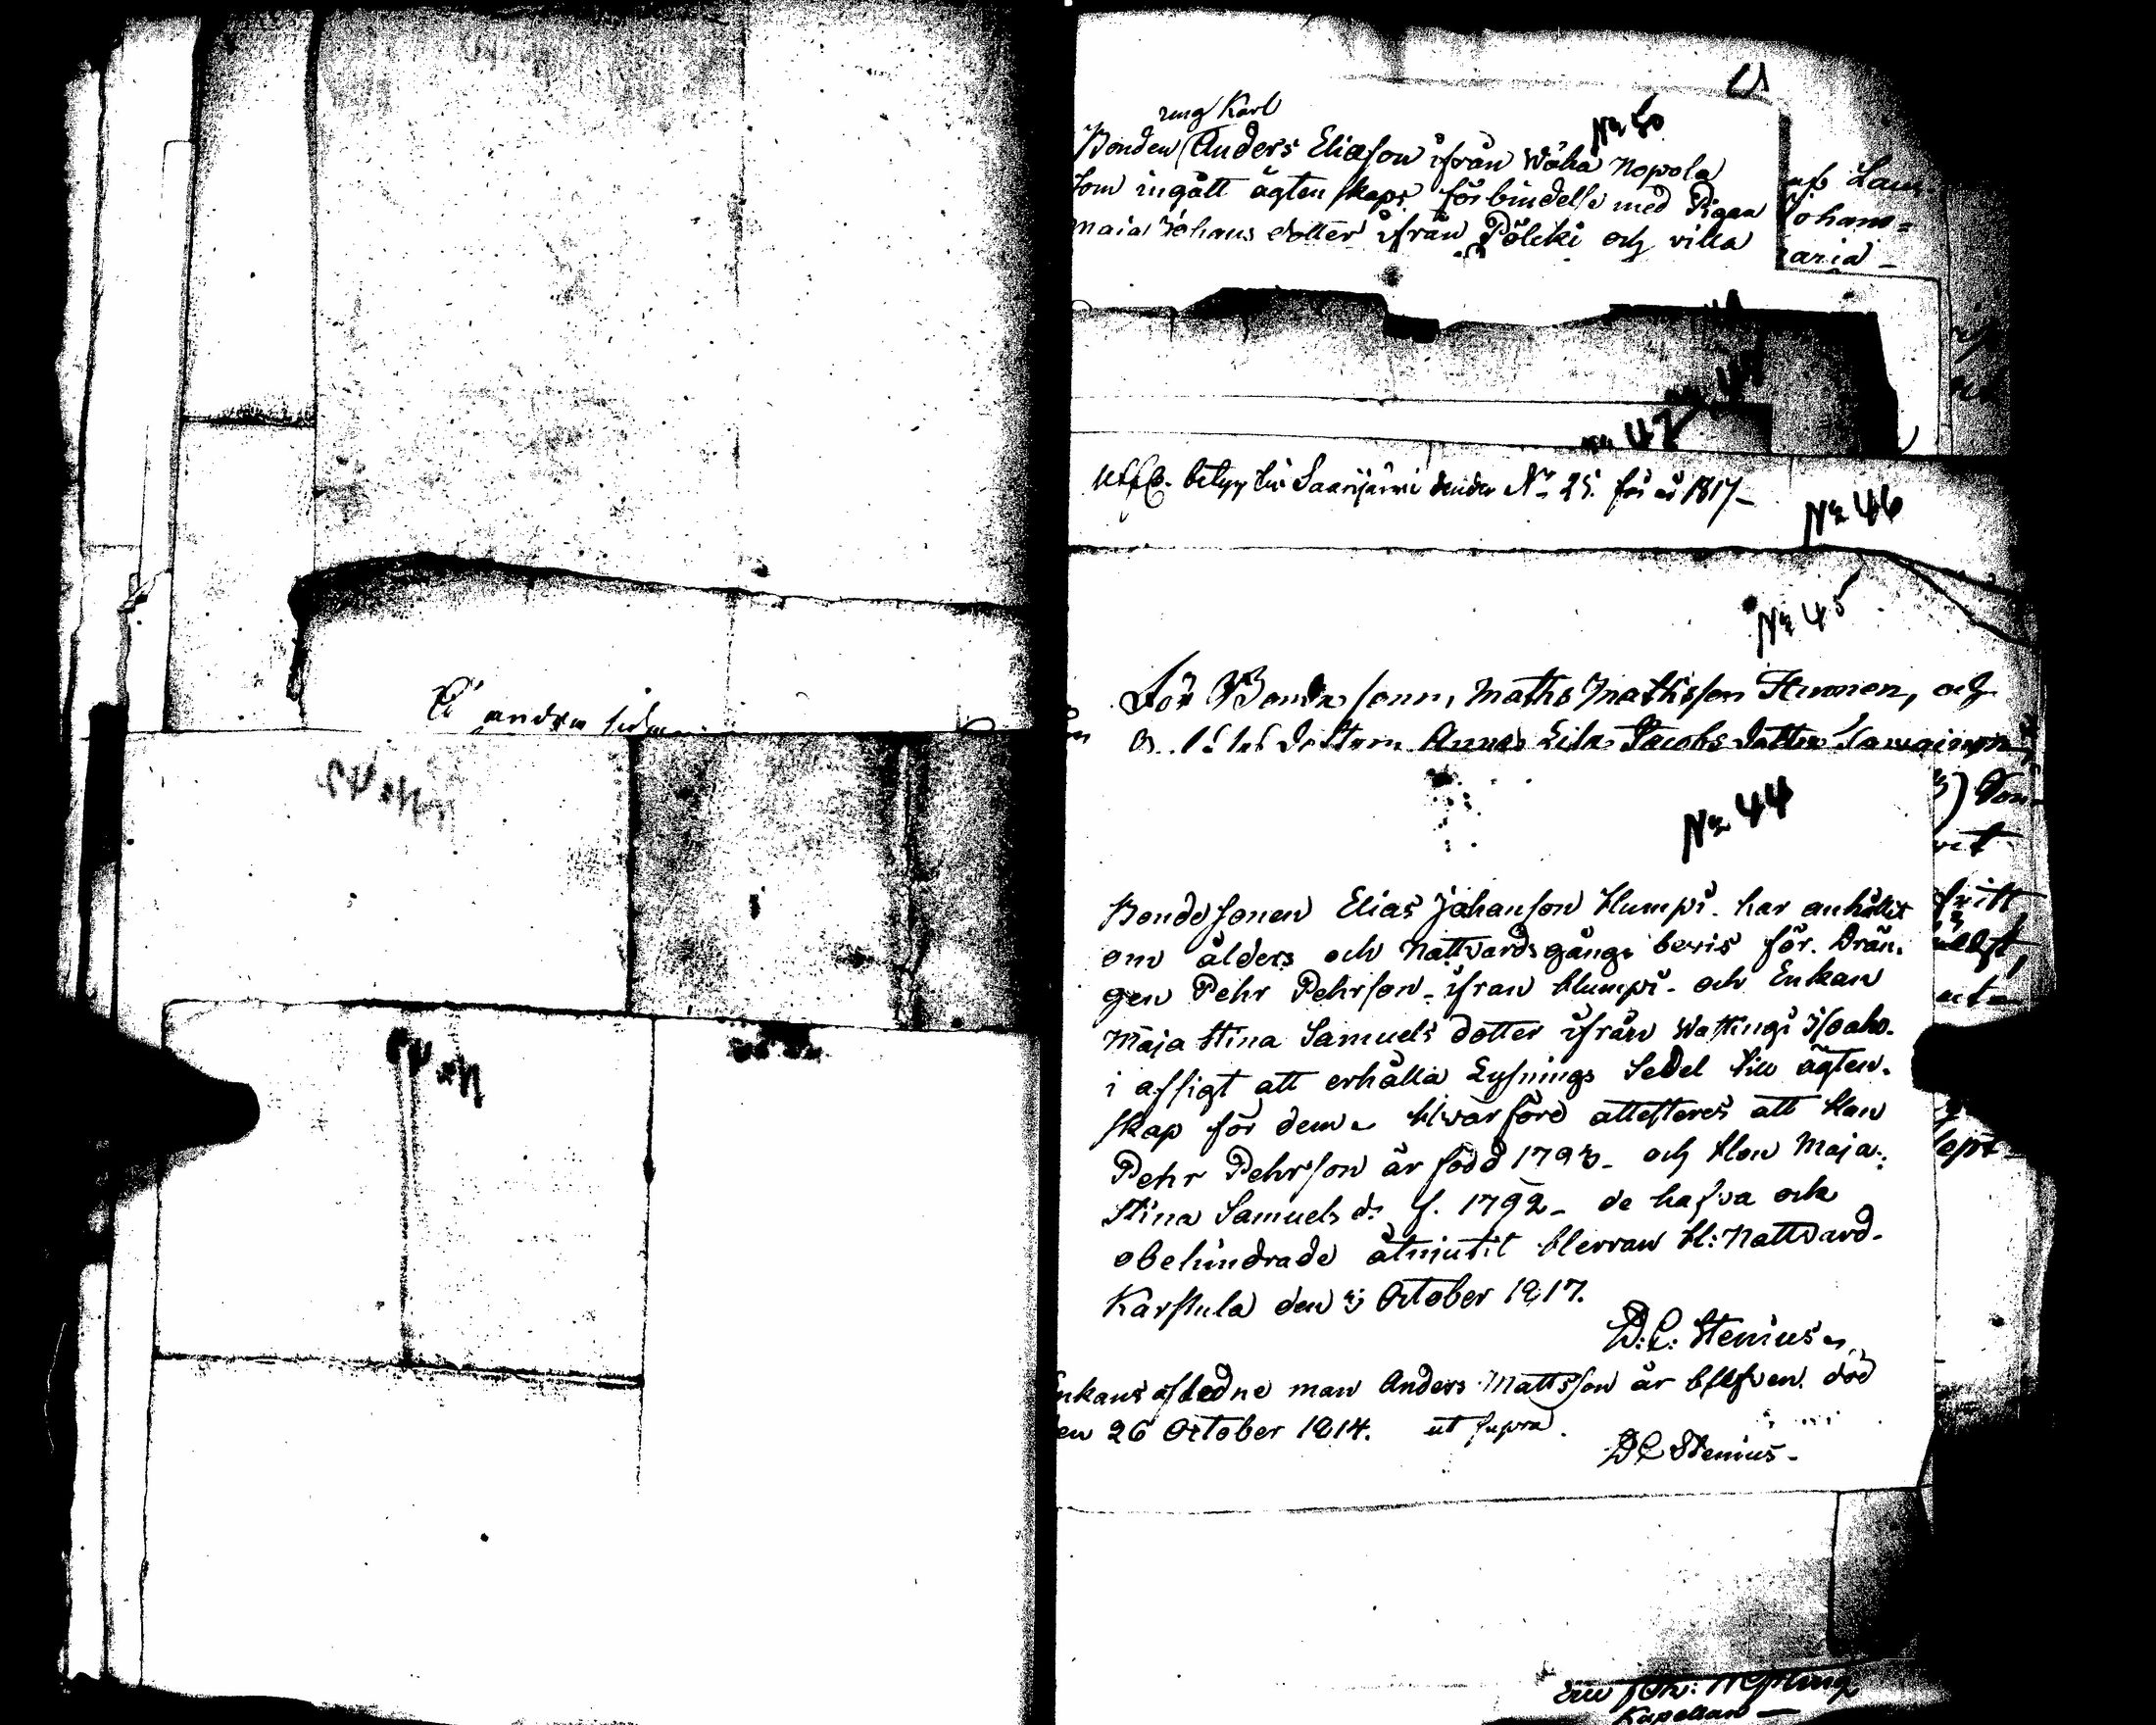 Å andra sidan
ung Karl
No 50
Bonden Anders Eliæson ifrån Wäha Nopola
som ingått ägtenskaps förbindelse med Pigan
Maia Johans dotter ifrån Pölcki och villa
Johans=
aria
No 47
betyg till Saarijärvi under No 25. för år 1817
No 46
No 45
För Bondesonen, Maths Mathsson Humon, och
dottern Anna Lisa Jacobs dotter
No 44
Bondesonen Elias Johanson Humpi har anhållit
om ålders och Nattvardsgångs bevis för Drän-
gen Pehr Pehrson ifran Humpi och Enkan
Maja Stina Samuels dotter ifrån Wattings Isoaho
i afsigt att erhålla Lysnings Sedel till ägten-
skap för dem. Hvarföre attesteres att Han
Pehr Pehrson är född 1793 och Hon Maja
Stina Samuels d: f. 1792 de hafva ock
obehindrade åtniutit Herran H: Nattvard
Karstula den 3 October 1817.
D: C: Stenius
Enkans afledne man Anders Mattsson är blefven död
den 26 October 1814. ut supra.
D C Stenius
Kapellan